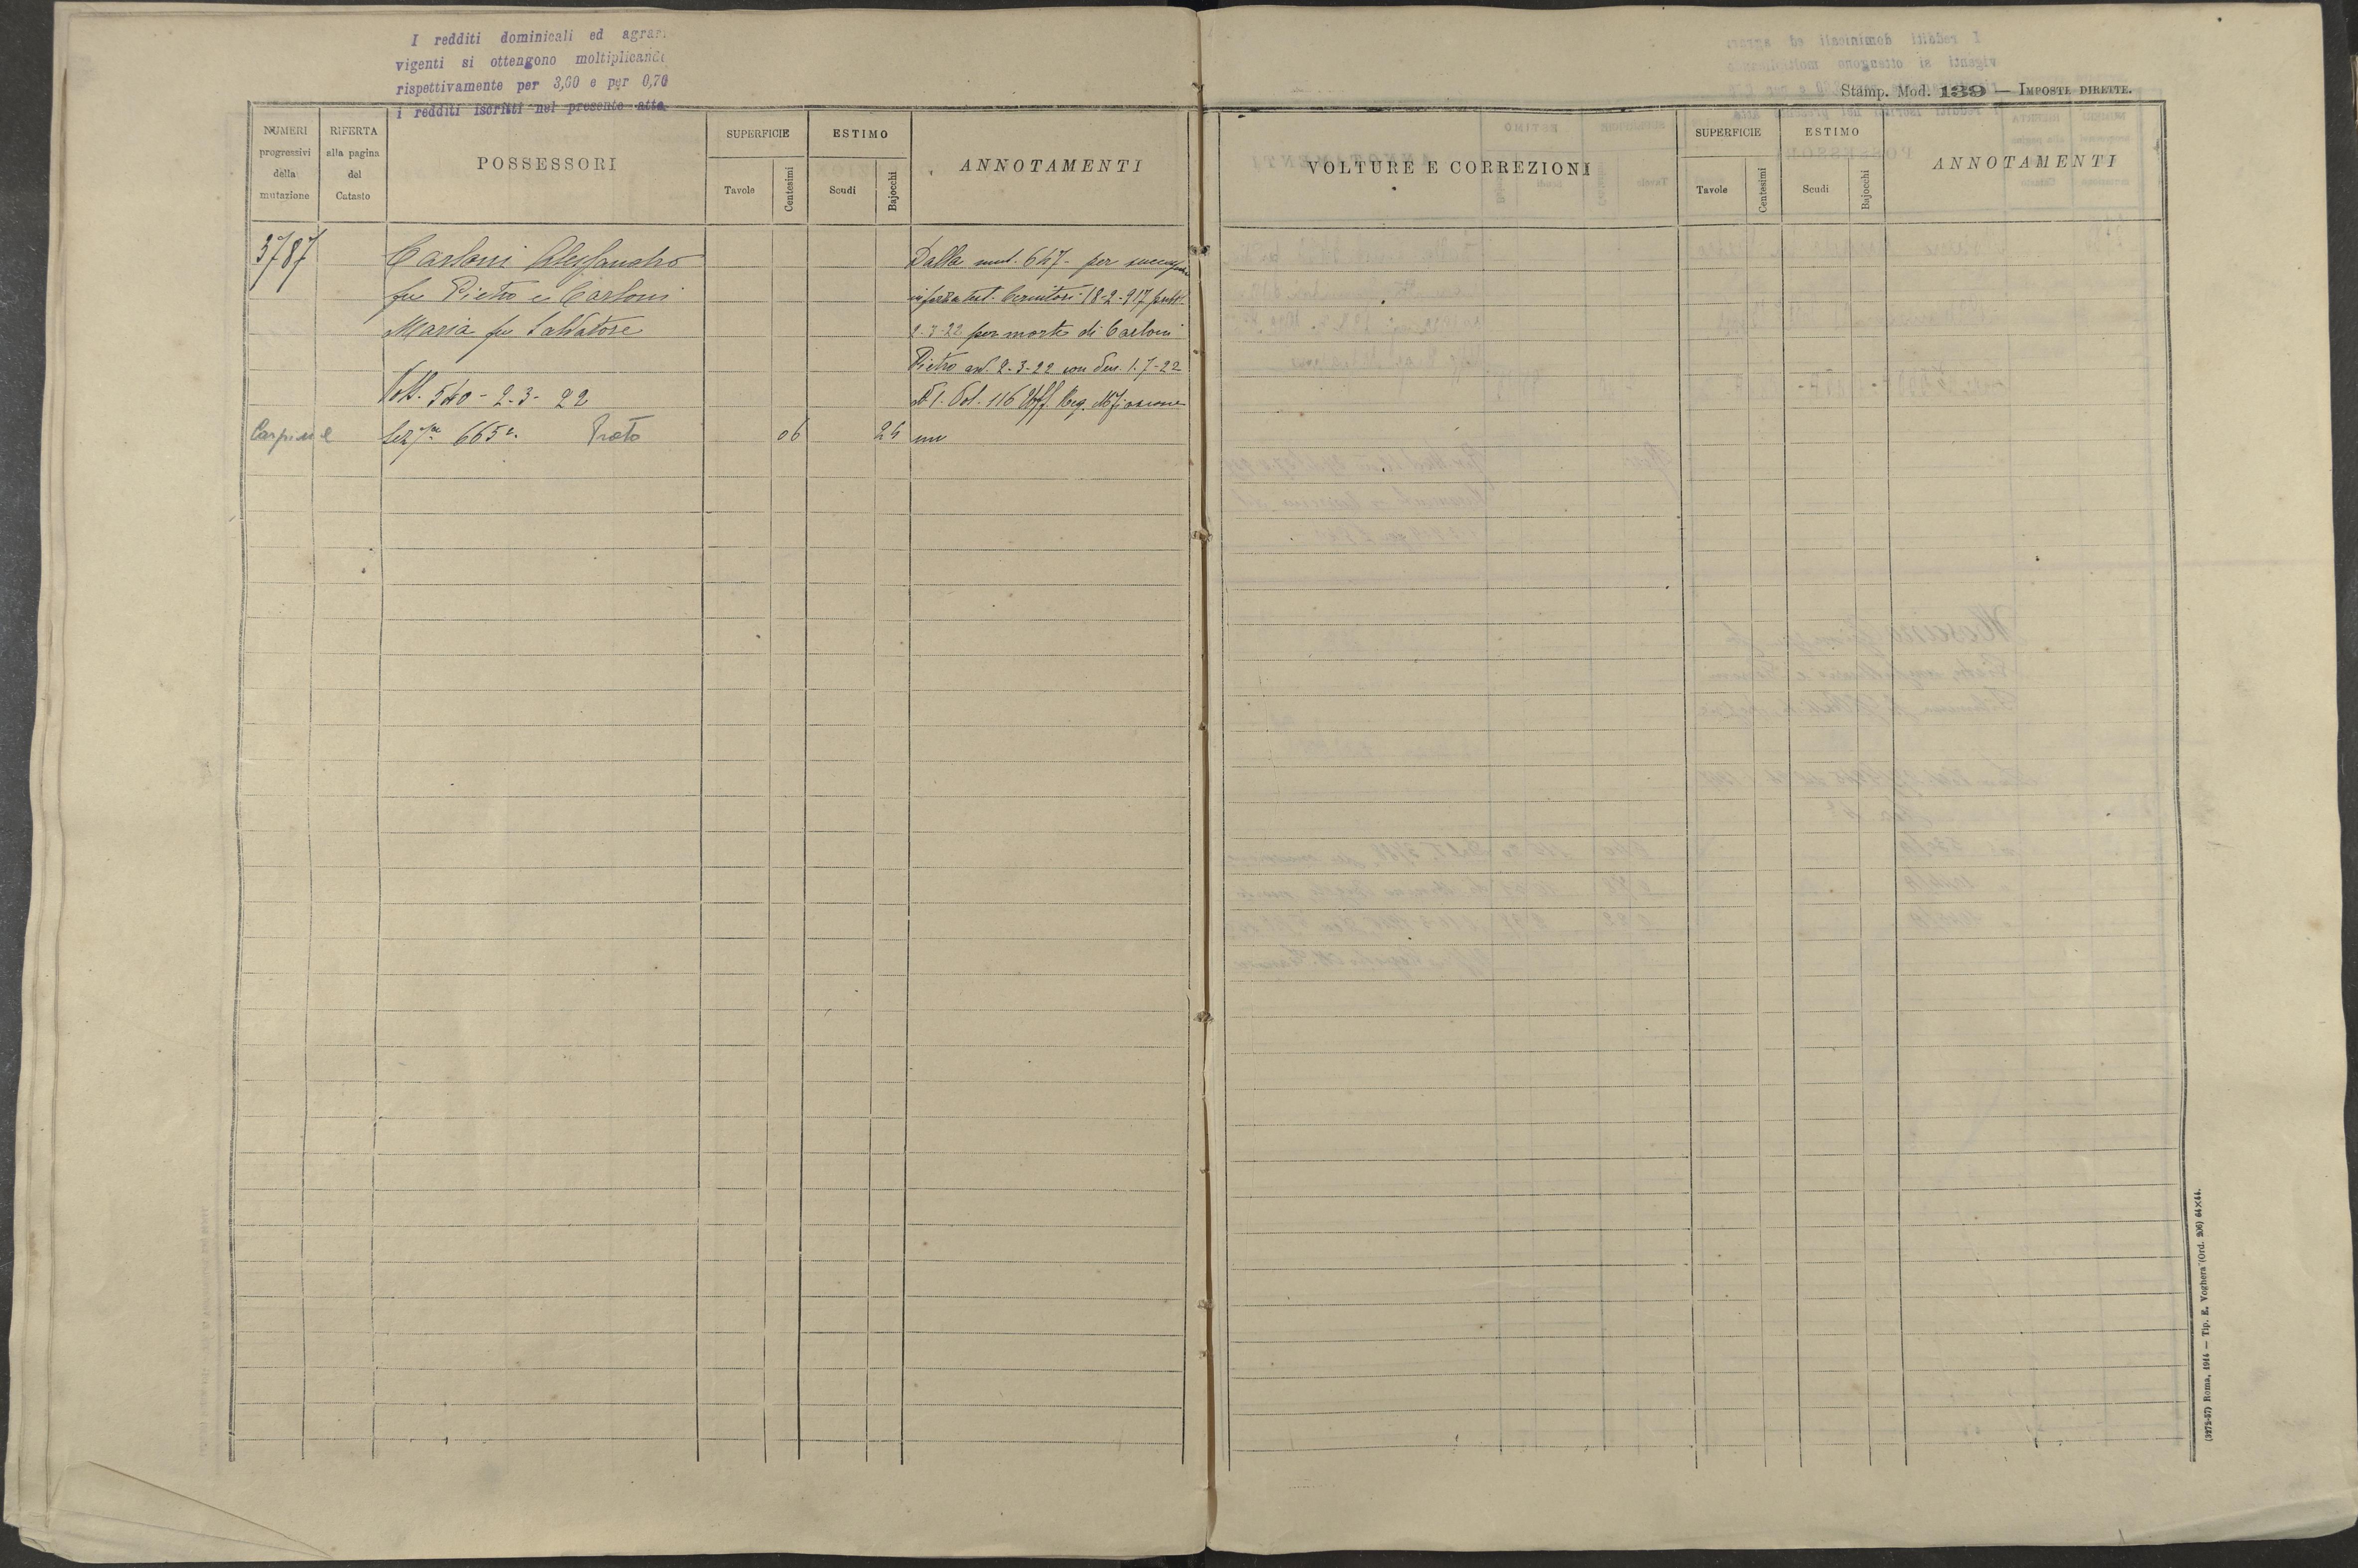 I redditi dominicali ed agrari
vigenti si ottengono moltiplicando
rispettivamente per 3,60 e per 0,70
i redditi iscritti nel presente atto
Stamp. Mod. 139 — IMPOSTE DIRETTE.
NUMERI progressivi della mutazione
RIFERTA alla pagina del Catasto
POSSESSORI
SUPERFICIE
Tavole
Centesimi
ESTIMO
Scudi
Bajocchi
ANNOTAMENTI
VOLTURE E CORREZIONI
SUPERFICIE
Tavole
Centesimi
ESTIMO
Scudi
Bajocchi
ANNOTAMENTI
3787
Carloni Alessandro
fu Pietro e Carloni
Maria fu Salvatore
Volt. 540 - 2-3-22
Dalla mut. 647 - per
18-2-917
2-3-22 per morte di Carloni
Pietro 2-3-22 con den. 1-7-22
N 1. Vol. 116 Uff. Reg.
Carpine
Sez 665 Prato
06
24
(3272-57) Roma, 1914 — Tip. E. Voghera (Ord. 206) 64×44.